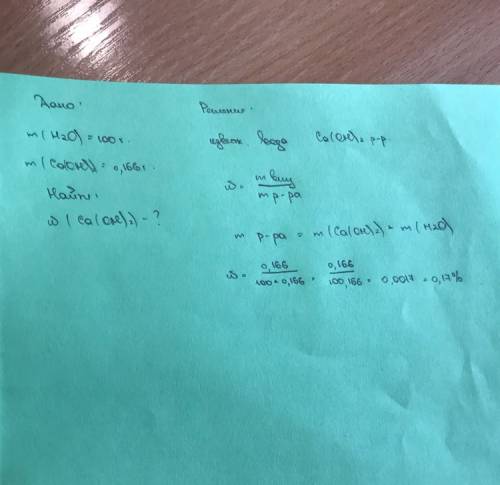 Дано:
m(H2O) = 100 г.
m(Ca(OH)2) = 0,166 г.
Найти:
ω(Ca(OH)2) - ?
Решение:
известк. вода Ca(OH)2 р-р
ω = m вещ / m р-ра
m р-ра = m(Ca(OH)2) + m(H2O)
ω = 0,166 / 100 + 0,166 = 0,166 / 100,166 = 0,0017 = 0,17%